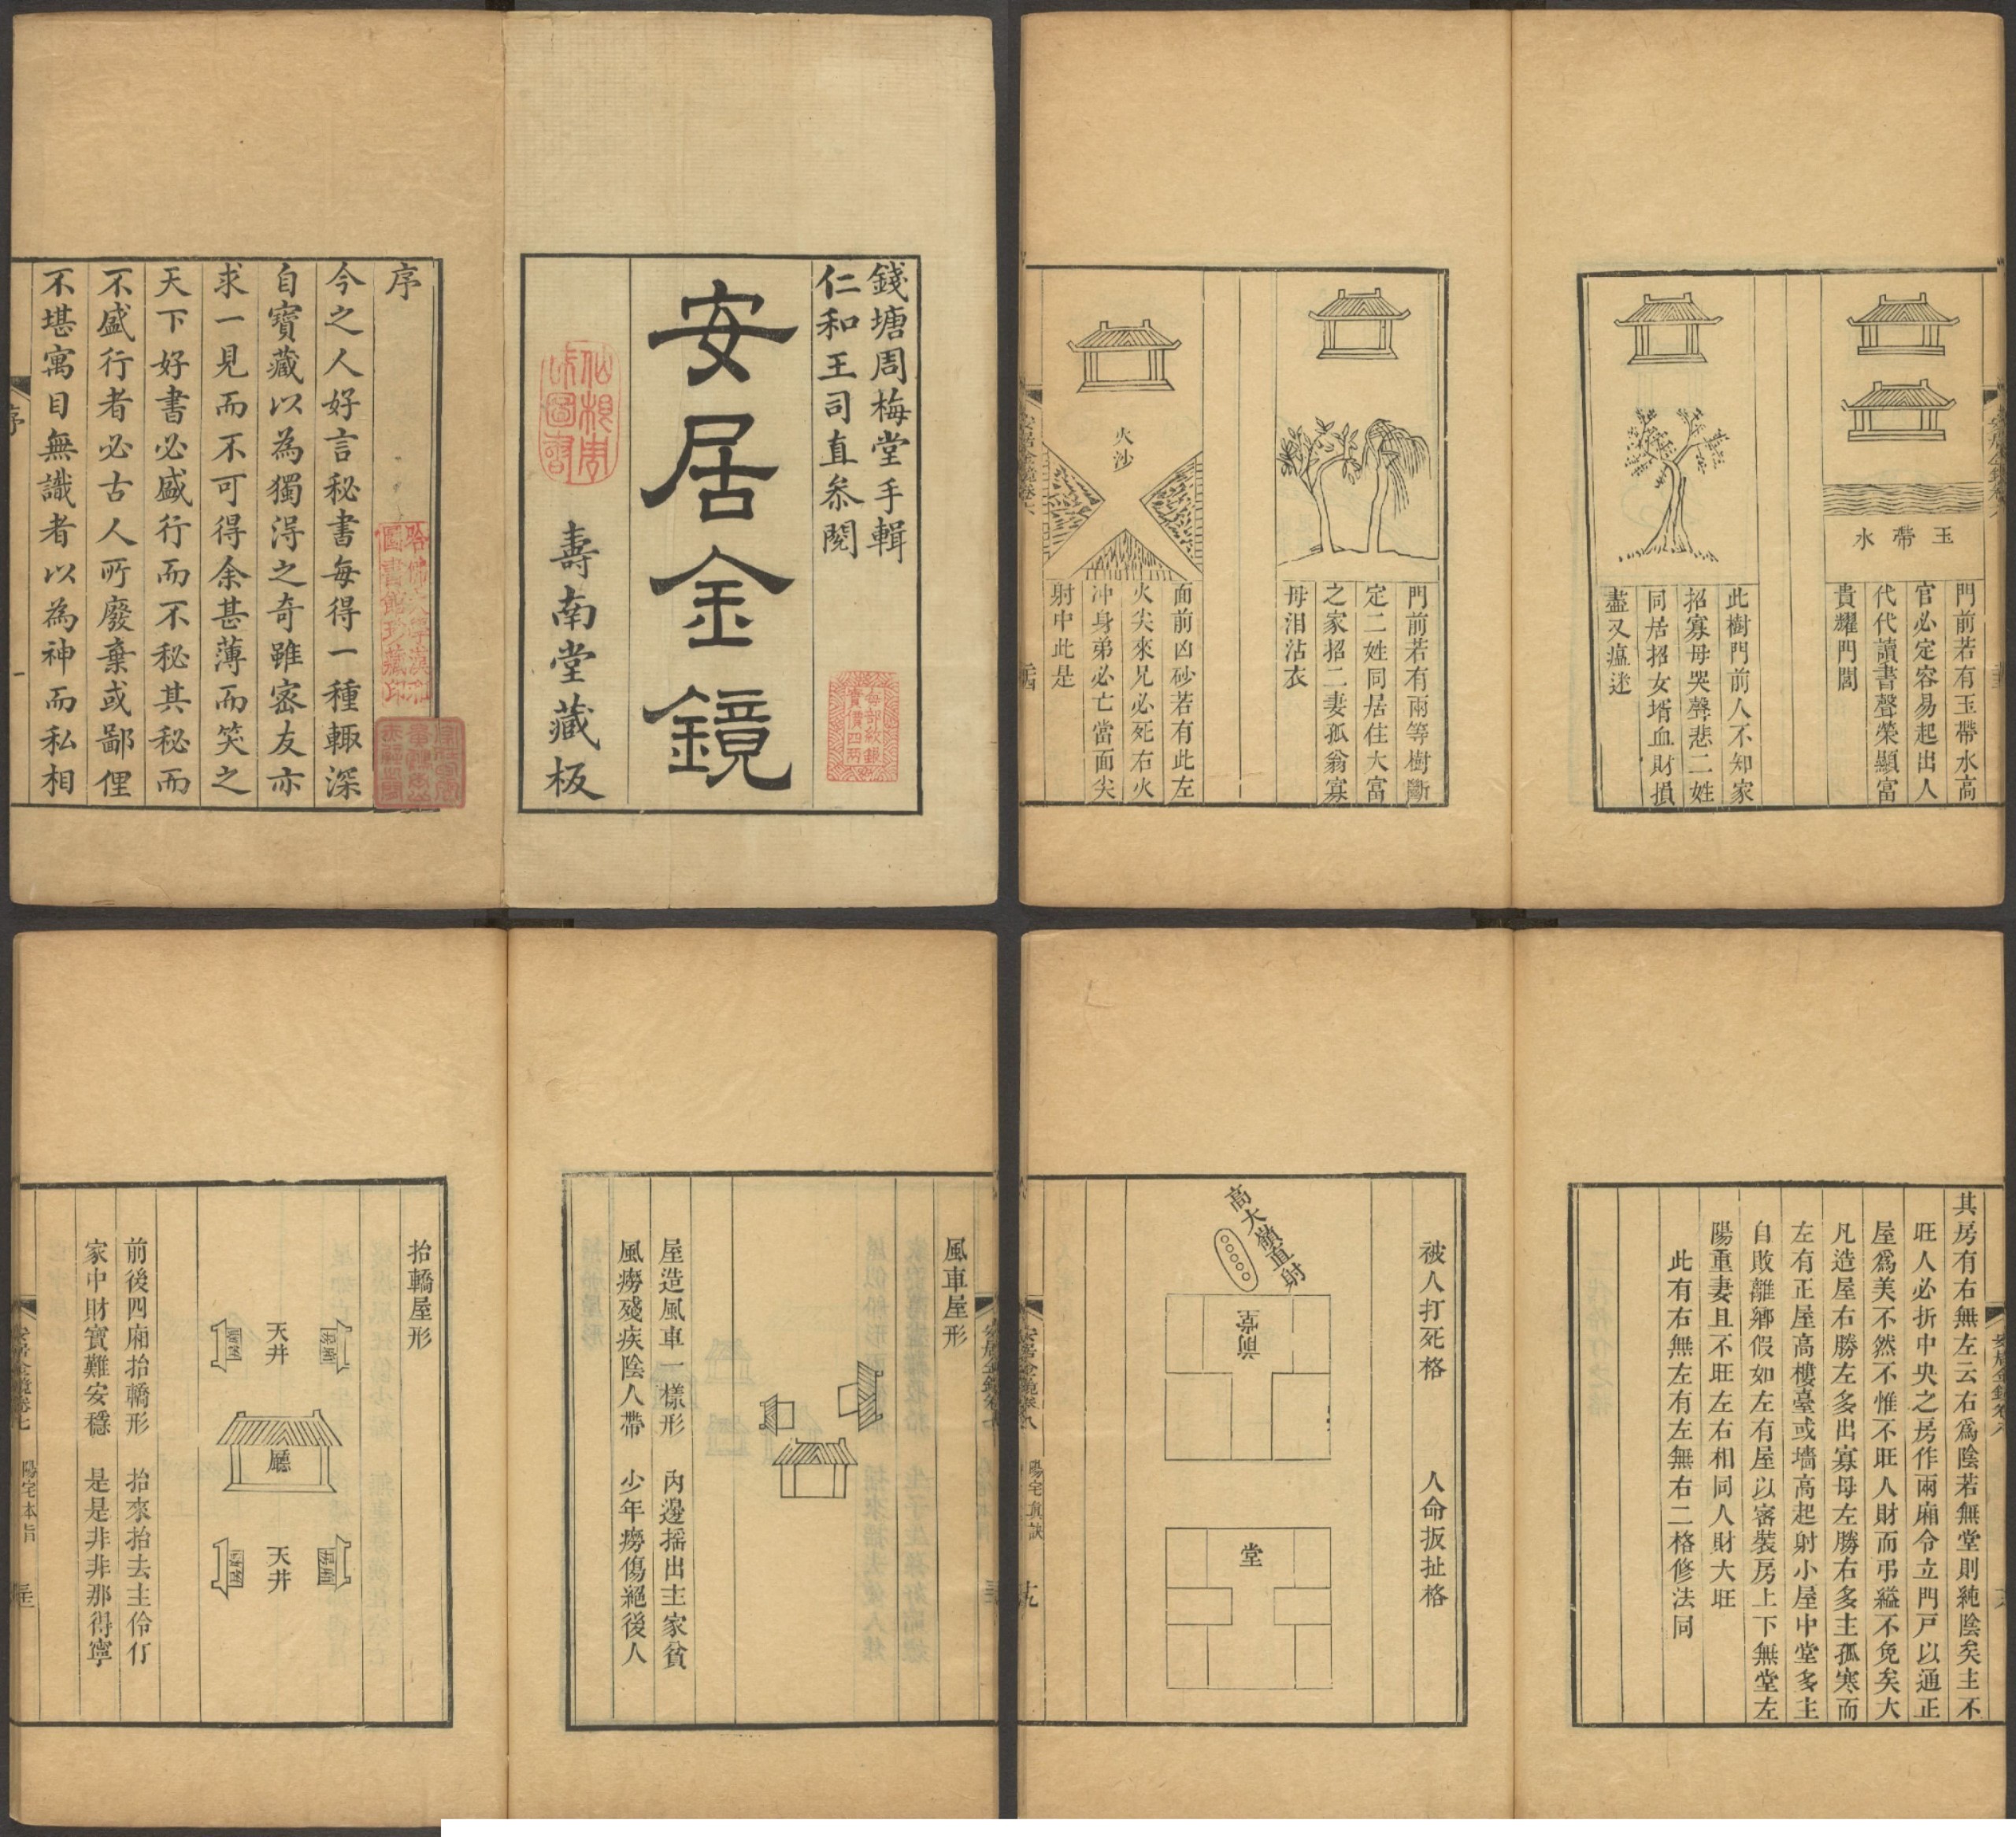 錢塘周梅堂手輯
仁和王司直叅閱
安居金鏡
壽南堂藏板
每部紋銀
實價四兩
序
今之人好言秘書每得一種輙深
自寶藏以為獨淂之奇雖密友亦
求一見而不可得余甚薄而笑之
天下好書必盛行而不秘其秘而
不盛行者必古人所廢棄或鄙俚
不堪寓目無識者以為神而私相
哈佛大學漢和
圖書館珍藏印
序
一
玉帶水
門前若有玉帶水高
官必定容易起出人
代代讀書聲榮顯富
貴耀門閭
此樹門前人不知家
招寡母哭聲悲二姓
同居招女壻血財損
盡又瘟迷
門前若有兩等樹斷
定二姓同居住大富
之家招二妻孤翁寡
母泪沾衣
火沙
面前凶砂若有此左
火尖來兄必死右火
冲身弟必亡當面尖
射中此是
安居金鏡卷六
風車屋形
屋造風車一樣形 內邊摇出主家貧
風癆殘疾陰人帶 少年癆傷絕後人
抬轎屋形
天井
廳
天井
前後四廂抬轎形 抬來抬去主伶仃
家中財寶難安穩 是是非非那得寧
安居金鏡卷七
陽宅本旨
其房有右無左云右爲陰若無堂則純陰矣主不
旺人必折中央之房作兩廂令立門戸以通正
屋爲美不然不惟不旺人財而弔縊不免矣大
凡造屋右勝左多出寡母左勝右多主孤寒而
左有正屋高樓臺或墻高起射小屋中堂多主
自敗離鄉假如左有屋以審裝房上下無堂左
陽重妻且不旺左右相同人財大旺
此有右無左有左無右二格修法同
被人打死格 人命扳扯格
高大嶺直射
堂
安居金鏡卷八
陽宅真訣
十九